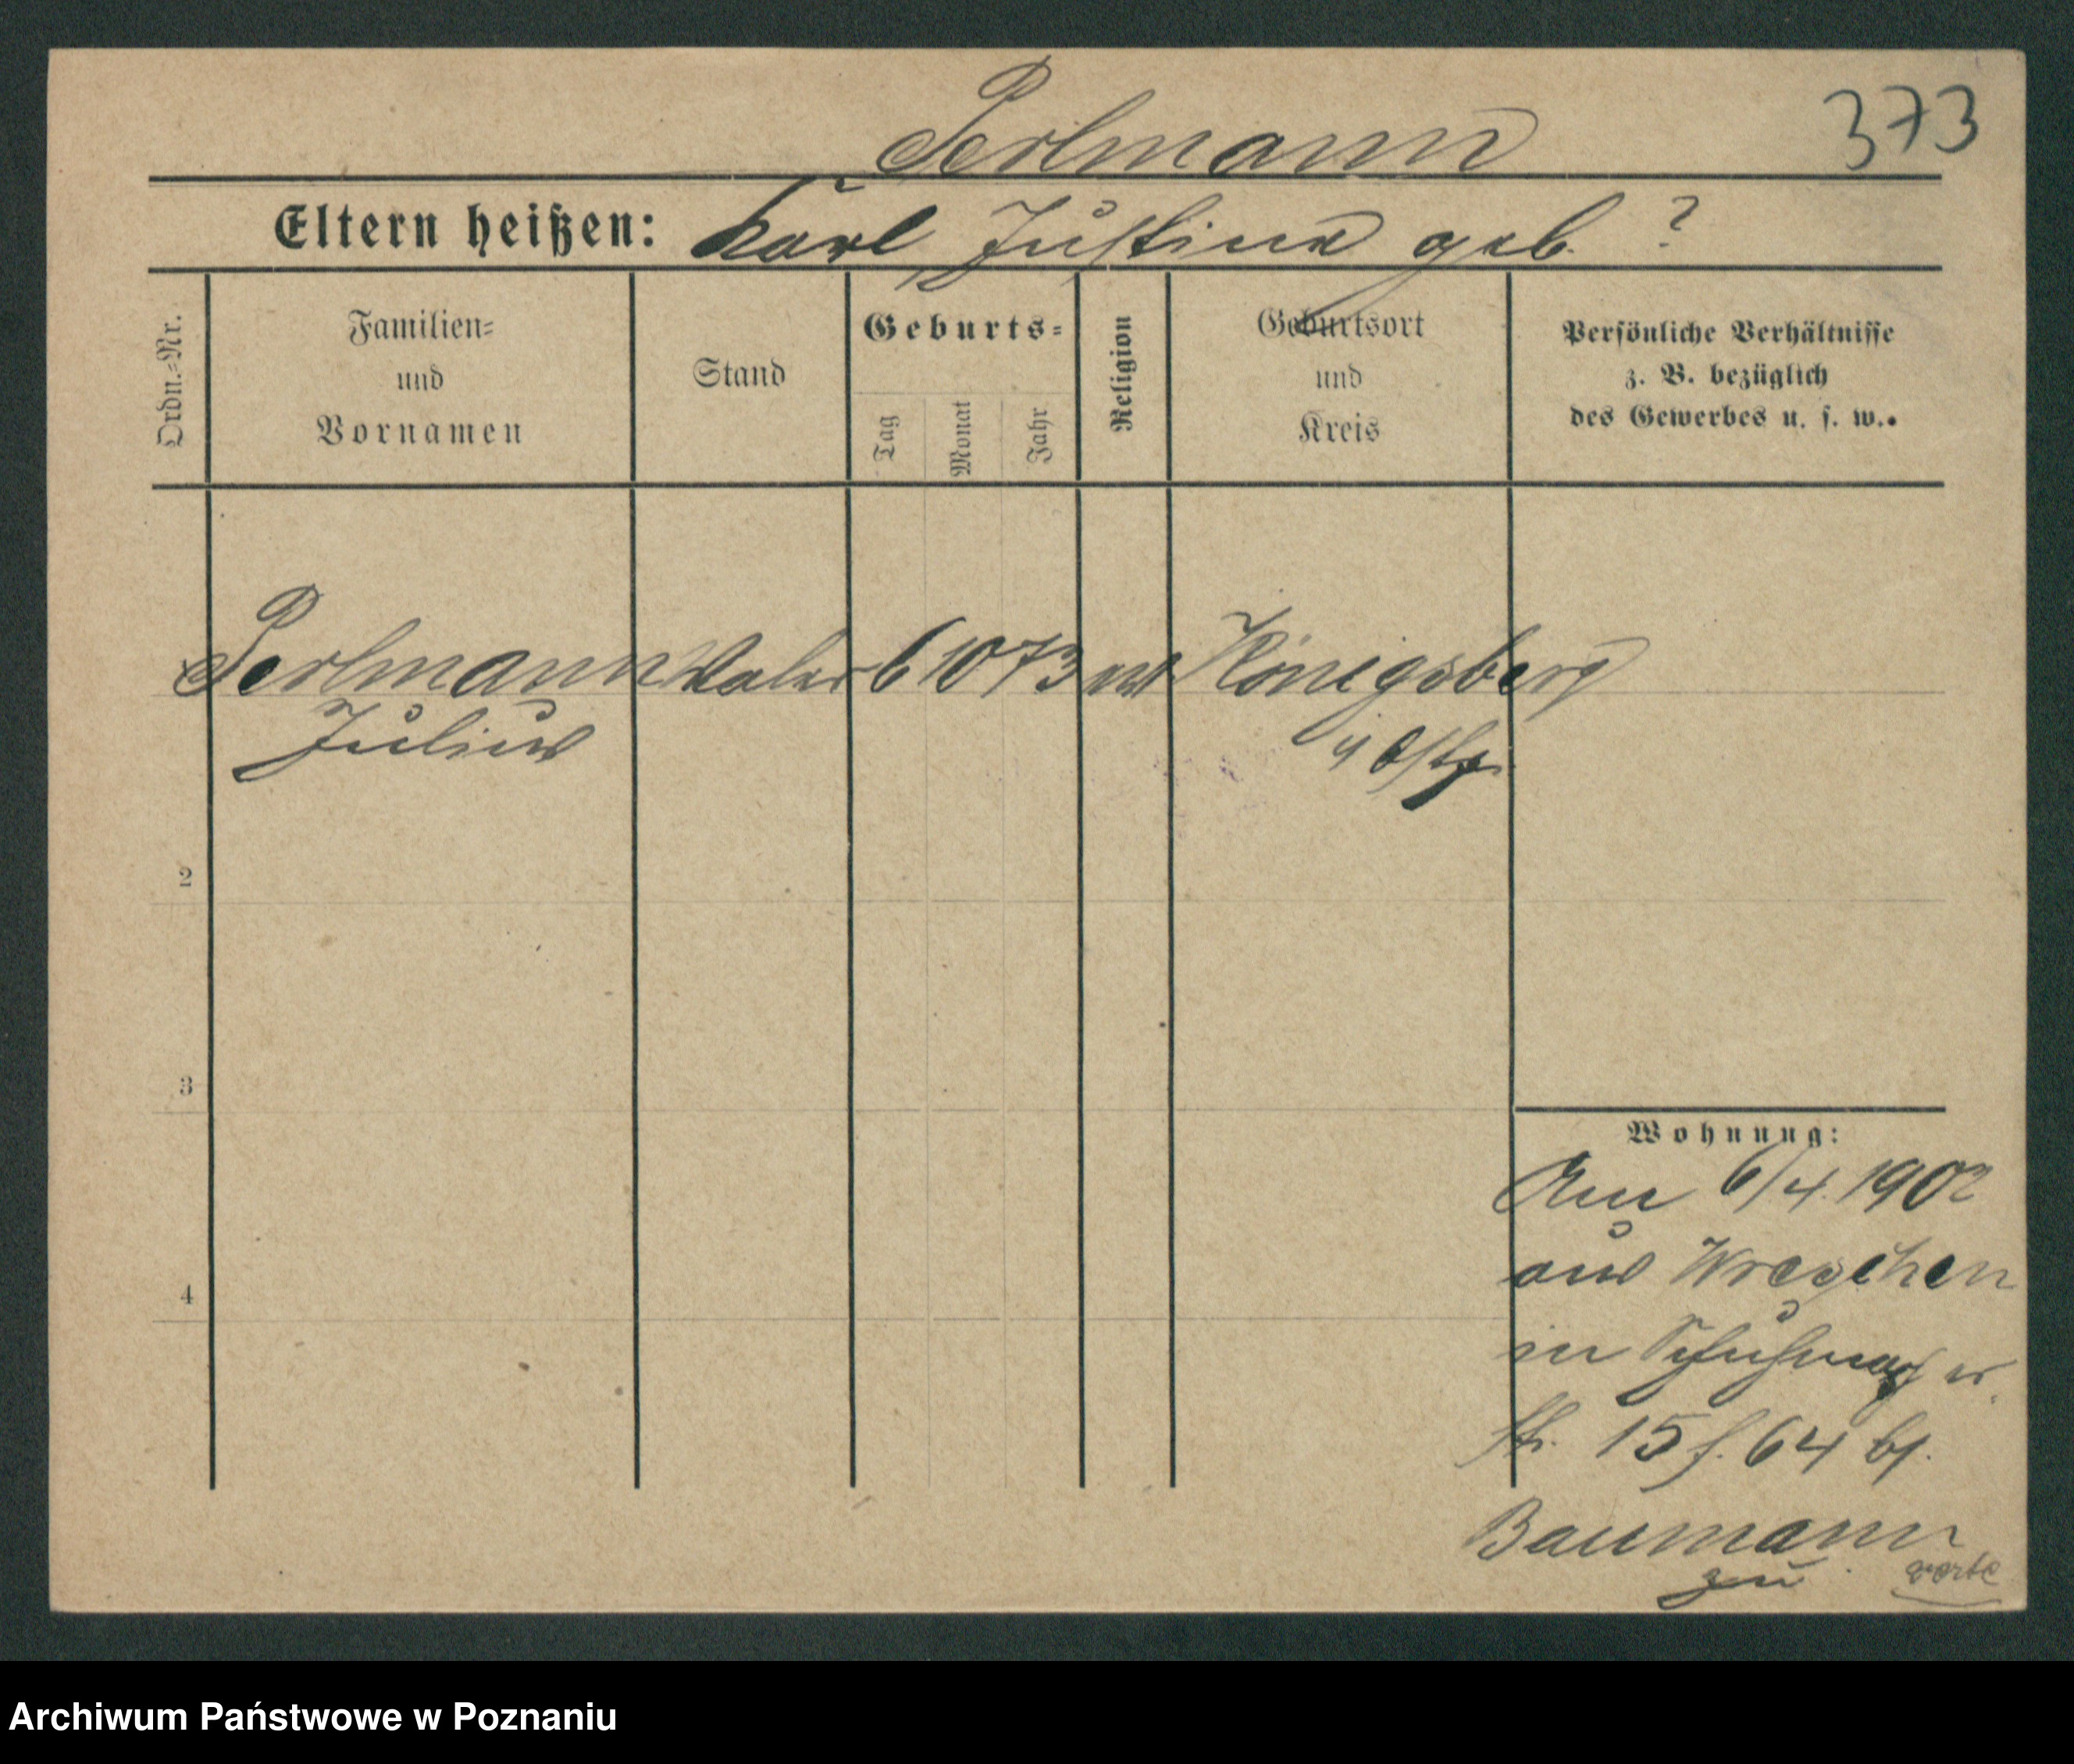 Perlmann 373
Eltern heißen: Karl Justine geb. ?
Ordn.-Nr.
Familien-
und
Vornamen
Stand
Geburts-
Tag
Monat
Jahr
Religion
Geburtsort
und
Kreis
Persönliche Verhältnisse
z. B. bezüglich
des Gewerbes u. s. w.
Perlmann Maler 6 10 73 Königsberg
Julius i/ Ostpr.
2
3
4
Wohnung:
Am 6/4. 1902
aus Wreschen
in Schuhmacher
str. 15 f. 64 bf.
Baumann
zu verte
Archiwum Państwowe w Poznaniu